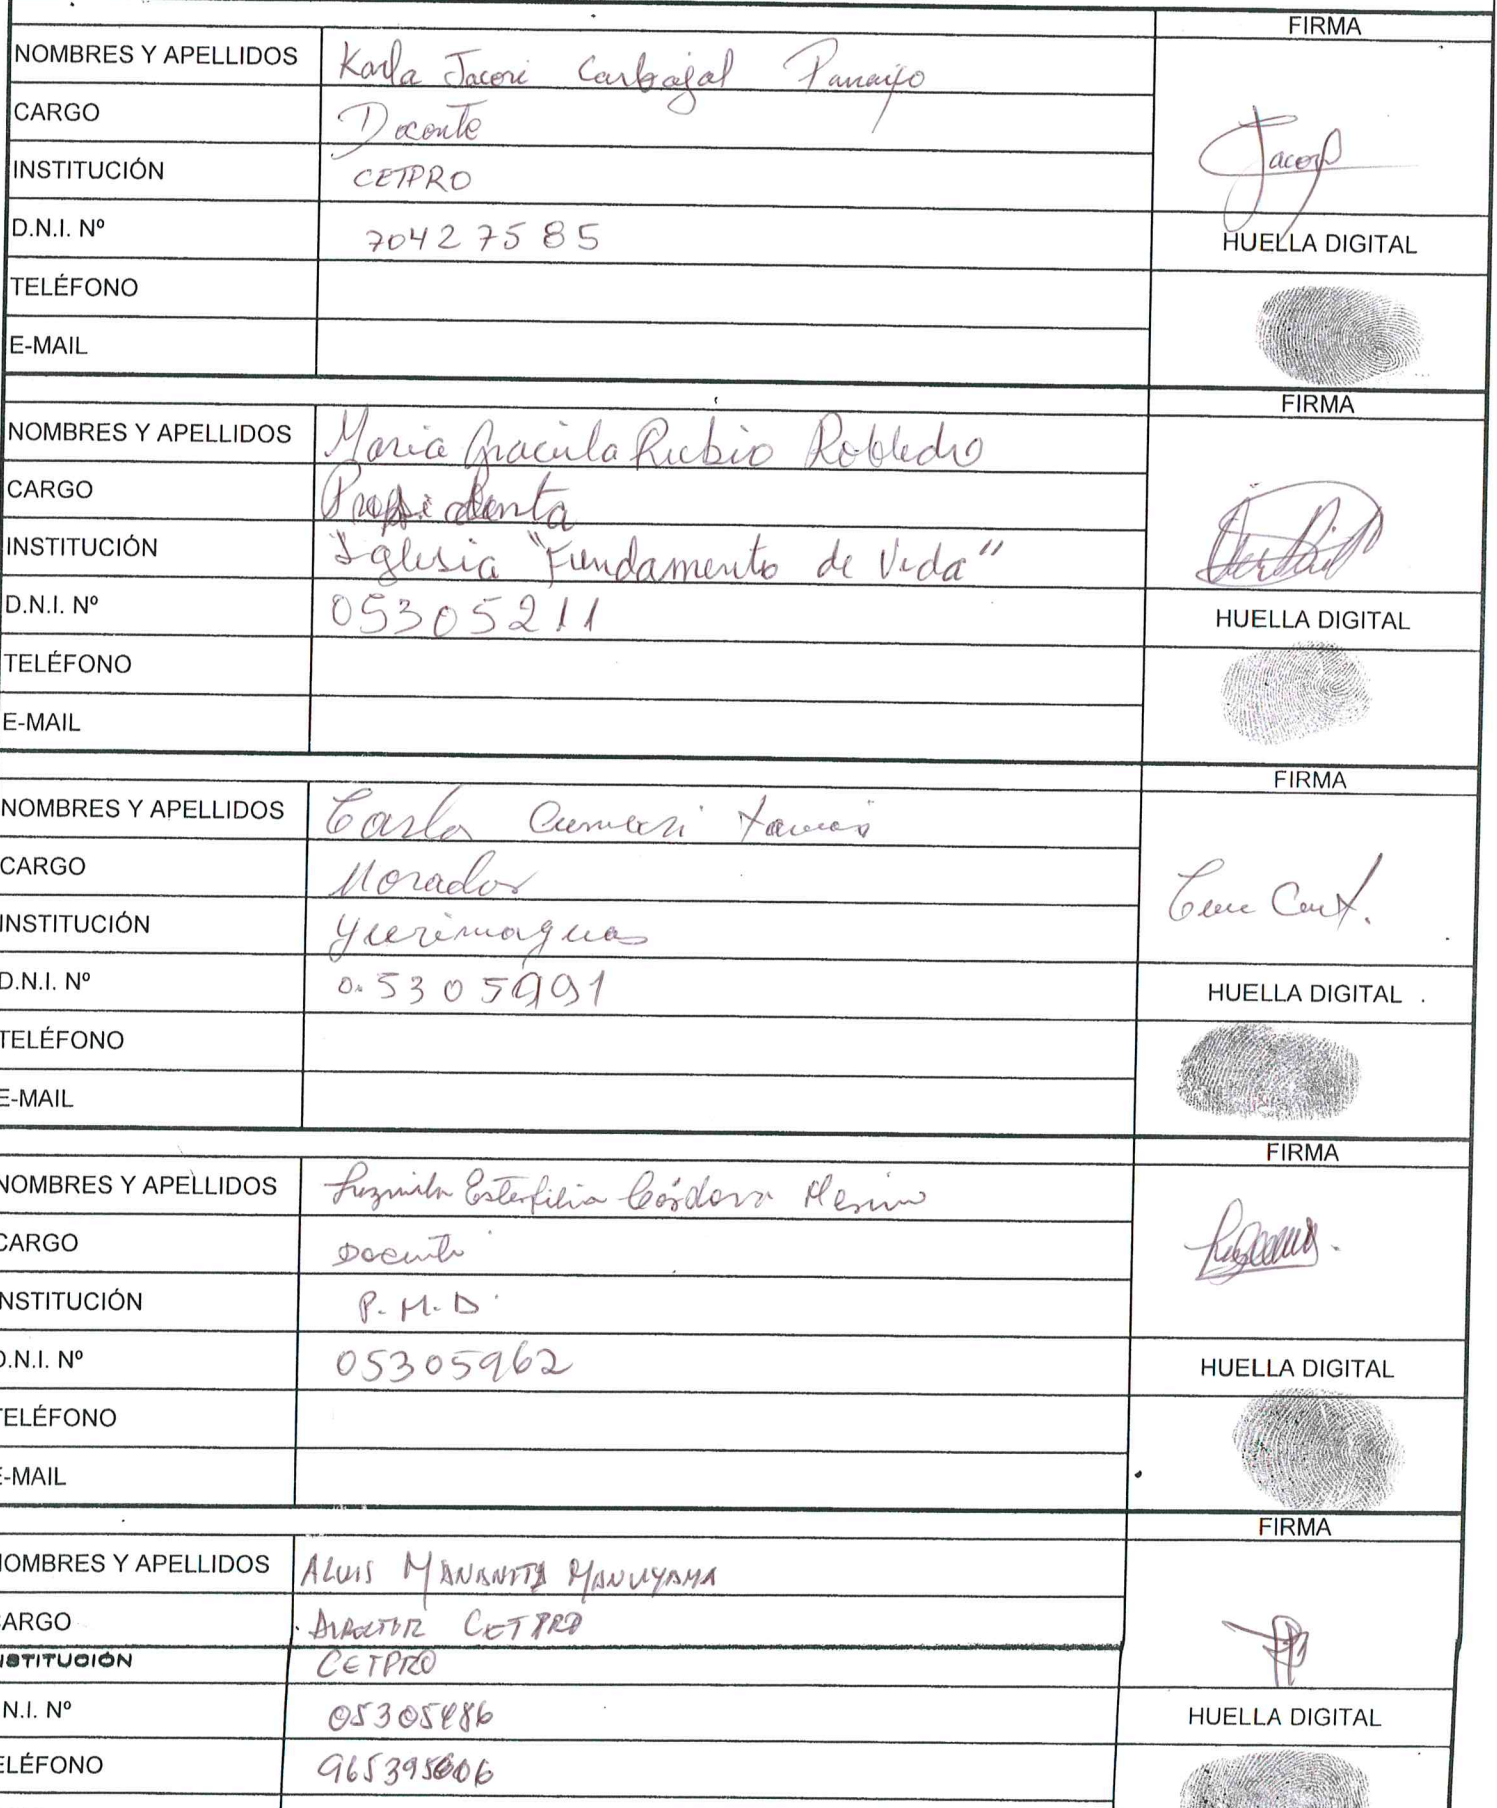 FIRMA
NOMBRES Y APELLIDOS Karla Jacori Carbajal Panaifo
CARGO Docente
INSTITUCIÓN CETPRO
D.N.I. Nº 70427585
HUELLA DIGITAL
TELÉFONO
E-MAIL
FIRMA
NOMBRES Y APELLIDOS Maria Graciela Rubio Robledo
CARGO
INSTITUCIÓN Iglesia "Fundamento de Vida"
D.N.I. Nº 05305211
HUELLA DIGITAL
TELÉFONO
E-MAIL
FIRMA
NOMBRES Y APELLIDOS
CARGO Morador
INSTITUCIÓN Yurimaguas
D.N.I. Nº 05305991
HUELLA DIGITAL
TELÉFONO
E-MAIL
FIRMA
NOMBRES Y APELLIDOS Luzmila Esterfilia Córdova Merino
CARGO Docente
INSTITUCIÓN P.M.D.
D.N.I. Nº 05305962
HUELLA DIGITAL
TELÉFONO
E-MAIL
FIRMA
NOMBRES Y APELLIDOS ALUIS MANUYAMA
CARGO DIRECTOR CETPRO
INSTITUCIÓN CETPRO
N.I. Nº 05305486
HUELLA DIGITAL
ELÉFONO